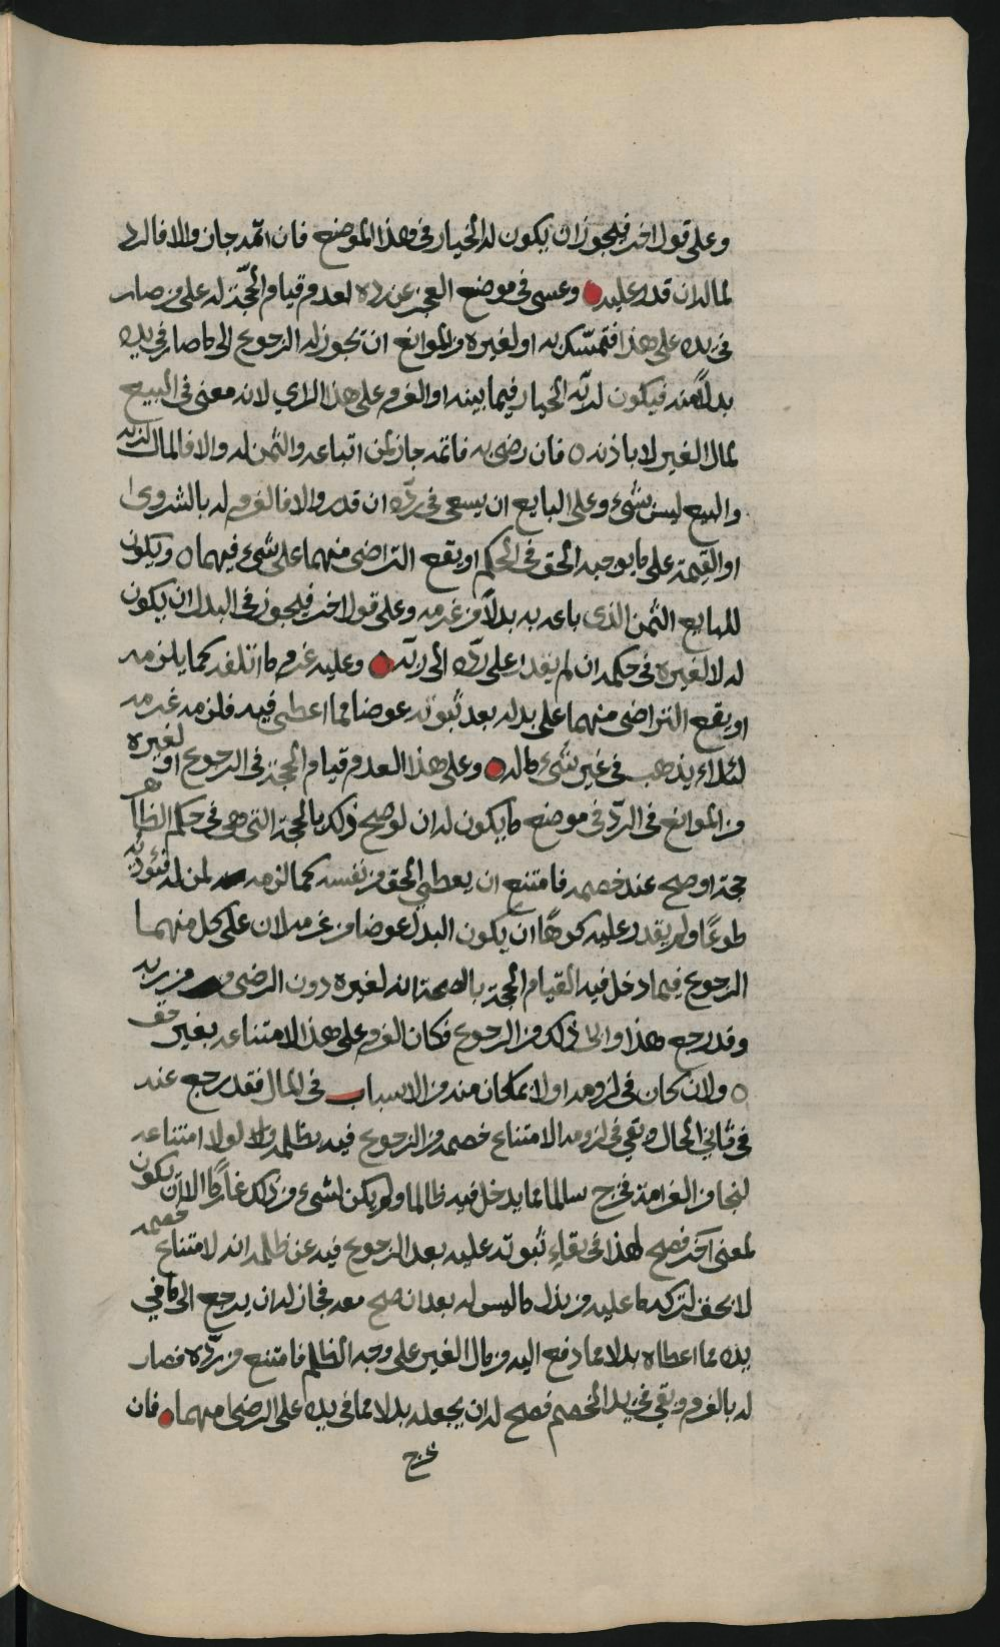 وعلى قول اخر فيجوز ان يكون له الخيار في هذا الموضع فان اتمه جاز والا فالرد
لماله ان قدر عليه وعسى في موضع العجز عن رده لعدم قيام الحجة له على من صار
في يده على هذا فتمسك به او لغيره من الموانع ان يجوز له الرجوع الى ما صار في يده
بدلا منه فيكون له الخيار فيما بينه او الغرم على هذا الراي لانه معنى في البيع
لمال الغير لا باذنه ٥ فان رضي به فاتمه جاز لمن ابتاعه والثمن له والا فالمال لربه
والبيع ليس بشيء وعلى البايع ان يسعى في رده ان قدر والا فالغرم له بالشروى
او القيمة على ما يوجبه الحق في الحكم او يقع التراضي منهما على شيء فيهما ٥ ويكون
للبايع الثمن الذي باعه به بدلا من غرمه وعلى قول اخر فيجوز في البدل ان يكون
له لا لغيره في حكمه ان لم يقدر على رده الى ربه وعليه غرم ما اتلفه كما يلزمه
او يقع التراضي منهما على بدله بعد ثبوته عوضا مما اعطى فيه فلزمه غرمه
لئلا يذهب في غير شيء ماله وعلى هذا العدم قيام الحجة في الرجوع او لغيره
من الموانع في الرد في موضع ما يكون له ان لو صح ذلك بالحجة التي هي في حكم الظاهر
حجة او صح عند خصمه فامتنع ان يعطي الحق من نفسه كما لزمه لمن له فيؤديه
طوعا ولم يقدر عليه كرها ان يكون البدل عوضا من غرمه لان على كل منهما
الرجوع فيما دخل فيه القيام الحجة بالصحة انه لغيره دون الرضى من ربه
وقد رجع هذا وابى ذلك من الرجوع فكان الغرم على هذا الامتناعه بغير حق
٥ ولان كان في لزومه اولا بما كان منه من الاسباب في المال فقد رجع عنه
في ثاني الحال وبقي في لزومه الامتناع خصمه من الرجوع فيه بظلمه ولو لا امتناعه
لنجا من الغرامة فخرج سالما مما يدخل فيه ظالما ولم يكن لشيء من ذلك غارما الا ان يكون
لمعنى اخر فصح لهذا في بقاء ثبوته عليه بعد الرجوع فيه عن ظلمه انه لامتناع خصمه
لا بحق لتركه ما عليه من بذل ما ليس له بعد ان صح معه فجاز له ان يرجع الى ما في
يده مما اعطاه بدلا مما دفع اليه من مال الغير على وجه الظلم فامتنع من رده فصار
له بالغرم وبقي في يد الخصم فصح له ان يجعله بدلا مما في يده على الرضى منهما فان